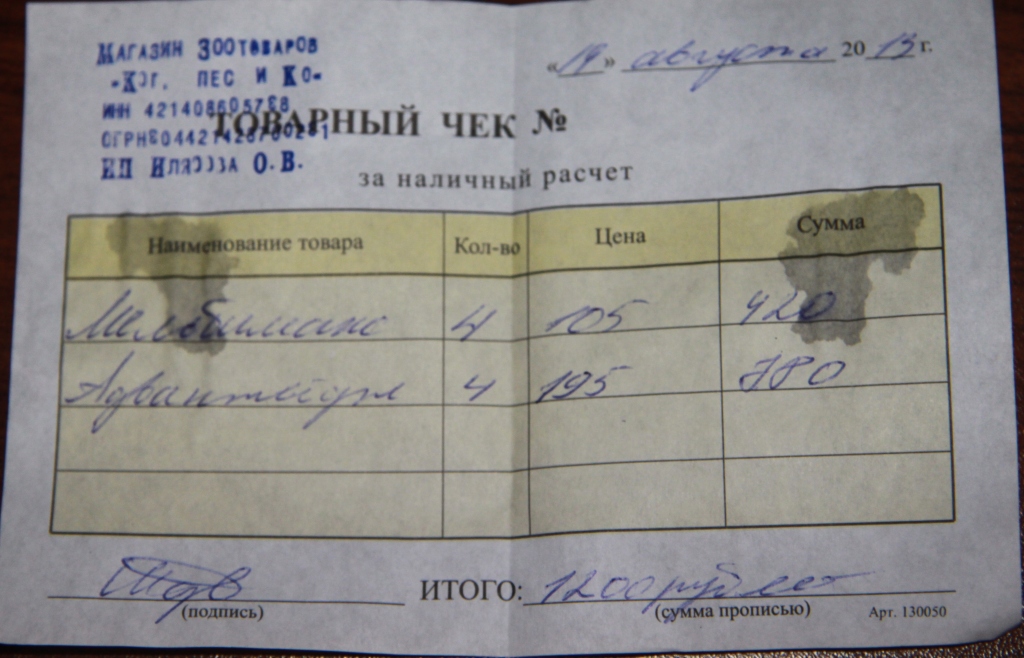 МАГАЗИН ЗООТОВАРОВ
«КОТ, ПЕС И КО»
«19» августа 2013 г.
ТОВАРНЫЙ ЧЕК №
ИП О.В.
за наличный расчет
Наименование товара Кол-во Цена Сумма
Мельбимакс 4 105 420
Адвантейдж 4 195 780
ИТОГО: 1200 рублей
(подпись) (сумма прописью) Арт. 130050